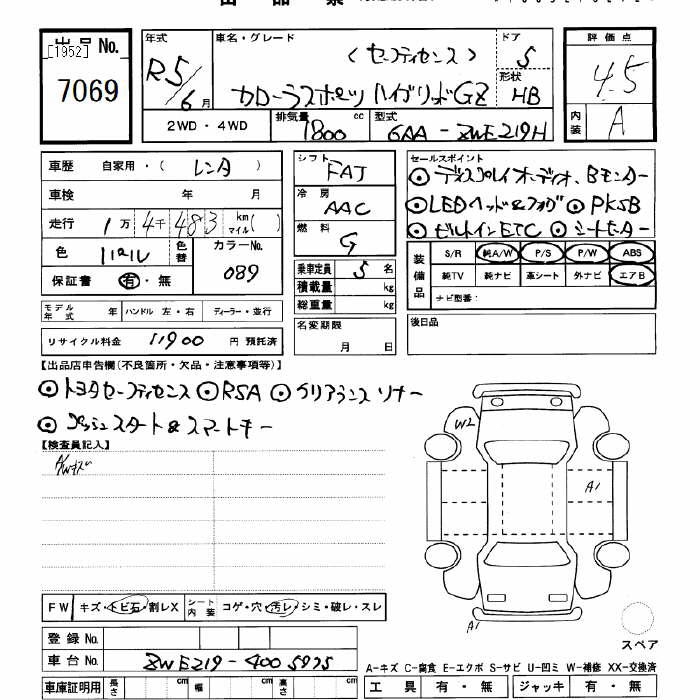 出品票
出品 No.
[1952]
7069
年式
R5/6月
車名・グレード
(セーフティセンス)
カローラスポーツ ハイブリッドGZ
ドア
5
形状
HB
評価点
4.5
内装
A
2WD・4WD
排気量 1800 cc
型式 6AA-ZWE219H
車歴 自家用・(レンタ)
車検 年 月
走行 1万4千483 km マイル( )
色 パール
色替
カラーNo. 089
保証書 有・無
モデル年式 年 ハンドル 左・右 ディーラー・並行
リサイクル料金 11900 円 預託済
シフト FAT
冷房 AAC
燃料 G
乗車定員 5 名
積載量 kg
総重量 kg
名変期限
月 日
セールスポイント
⊙ディスプレイオーディオ、Bモニター
⊙LEDヘッド&フォグ ⊙PKSB
⊙ビルトインETC ⊙シートヒーター
装備品
S/R 純A/W P/S P/W ABS
純TV 純ナビ 革シート 外ナビ エアB
ナビ型番:
後日品
【出品店申告欄(不良箇所・欠品・注意事項等)】
⊙トヨタセーフティセンス ⊙RSA ⊙クリアランスソナー
⊙プッシュスタート&スマートキー
【検査員記入】
A/Wキズ
W2
A1
A1
スペア
FW キズ・トビ石・割レX シート内装 コゲ・穴・汚レ・シミ・破レ・スレ
登録 No.
車台 No. ZWE219-4005975
車庫証明用 長さ cm 幅 cm 高さ cm
A-キズ C-腐食 E-エクボ S-サビ U-凹ミ W-補修 XX-交換済
工具 有・無 ジャッキ 有・無